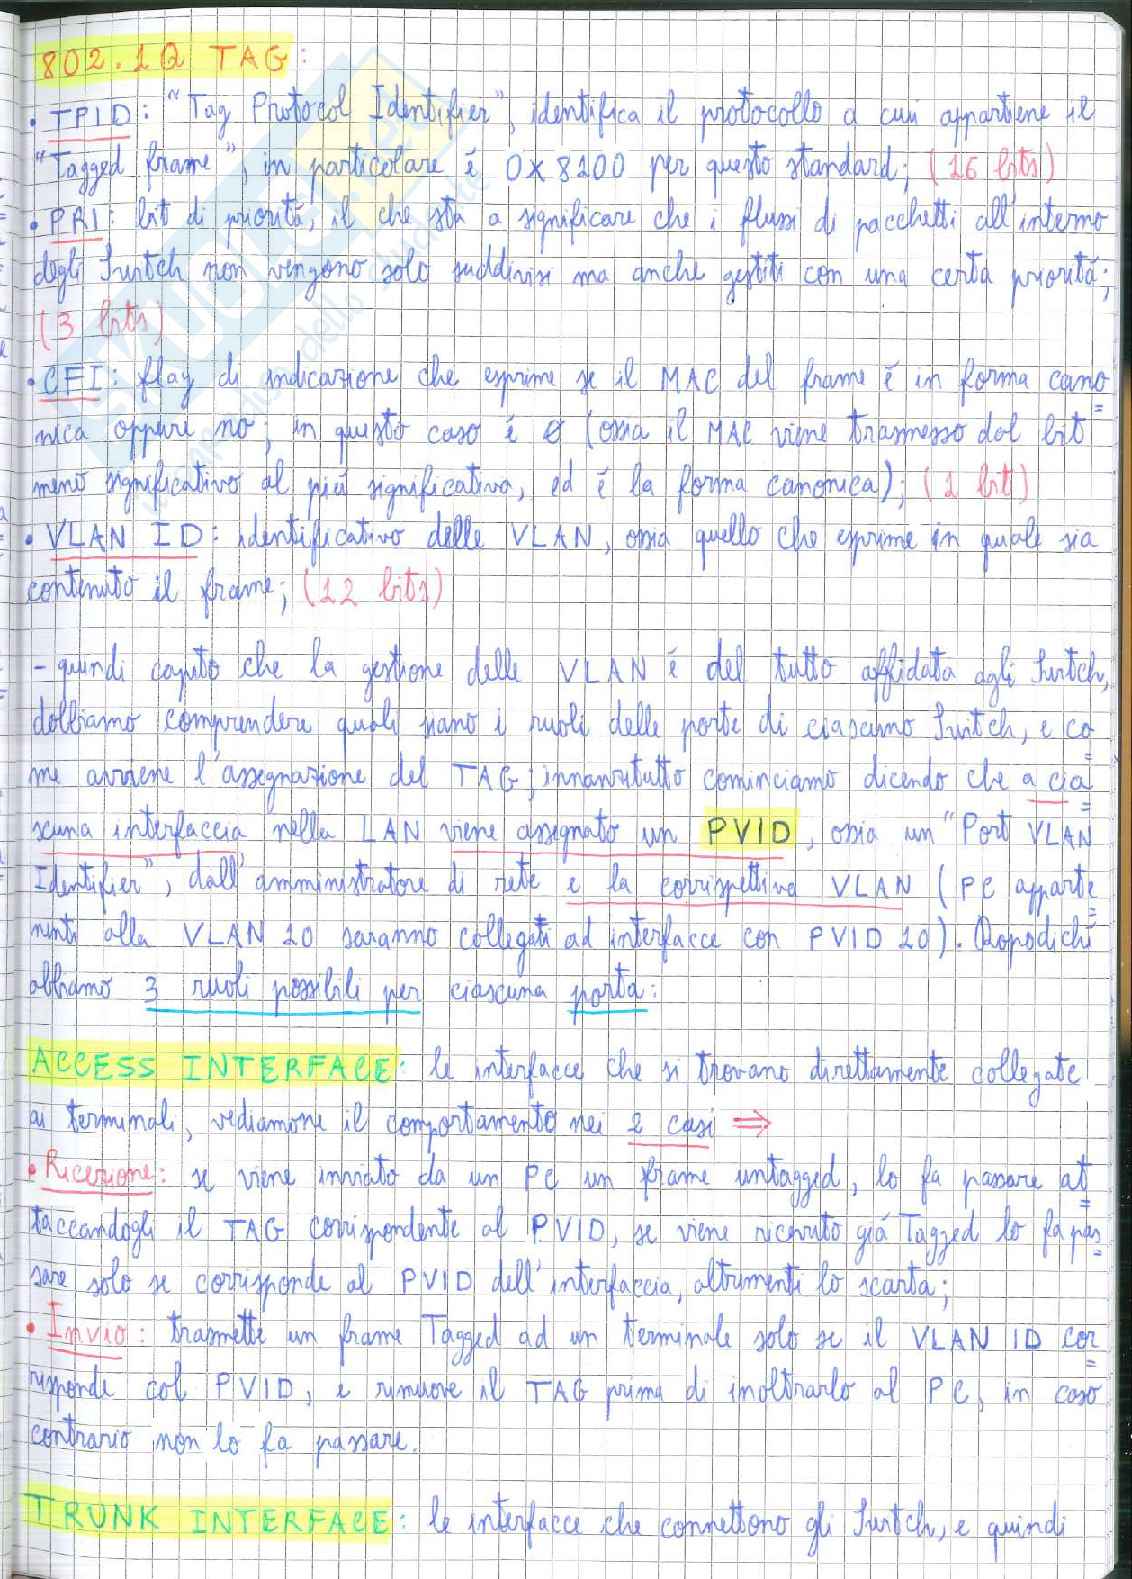 802.1Q TAG:
• TPID: "Tag Protocol Identifier", identifica il protocollo a cui appartiene il
"Tagged frame", in particolare é 0x8100 per questo standard; (16 bits)
• PRI: bit di prioritá, il che sta a significare che i flussi di pacchetti all'interno
degli Switch non vengono solo suddivisi ma anche gestiti con una certa prioritá;
(3 bits)
• CFI: flag di indicazione che esprime se il MAC del frame é in forma cano=
nica oppure no; in questo caso é 0 (ossia il MAC viene trasmesso dal bit
meno significativo al piú significativo, ed é la forma canonica); (1 bit)
• VLAN ID: identificativo delle VLAN, ossia quello che esprime in quale sia
contenuto il frame; (12 bits)
- quindi capito che la gestione delle VLAN é del tutto affidata agli Switch,
dobbiamo comprendere quali siano i ruoli delle porte di ciascuno Switch, e co=
me avviene l'assegnazione del TAG; innanzitutto cominciamo dicendo che a cia=
scuna interfaccia nella LAN viene assegnato un PVID, ossia un "Port VLAN
Identifier", dall'amministratore di rete e la corrispettiva VLAN (PC apparte=
nenti alla VLAN 10 saranno collegati ad interfacce con PVID 10). Dopodiché
abbiamo 3 ruoli possibili per ciascuna porta:
ACCESS INTERFACE: le interfacce che si trovano direttamente collegate
ai terminali, vediamone il comportamento nei 2 casi ⇒
• Ricezione: se viene inviato da un PC un frame untagged, lo fa passare at=
taccandogli il TAG corrispondente al PVID, se viene ricevuto giá Tagged lo fa pas=
sare solo se corrisponde al PVID dell'interfaccia, altrimenti lo scarta;
• Invio: trasmette un frame Tagged ad un terminale solo se il VLAN ID cor=
risponde col PVID, e rimuove il TAG prima di inoltrarlo al PC, in caso
contrario non lo fa passare.
TRUNK INTERFACE: le interfacce che connettono gli Switch, e quindi